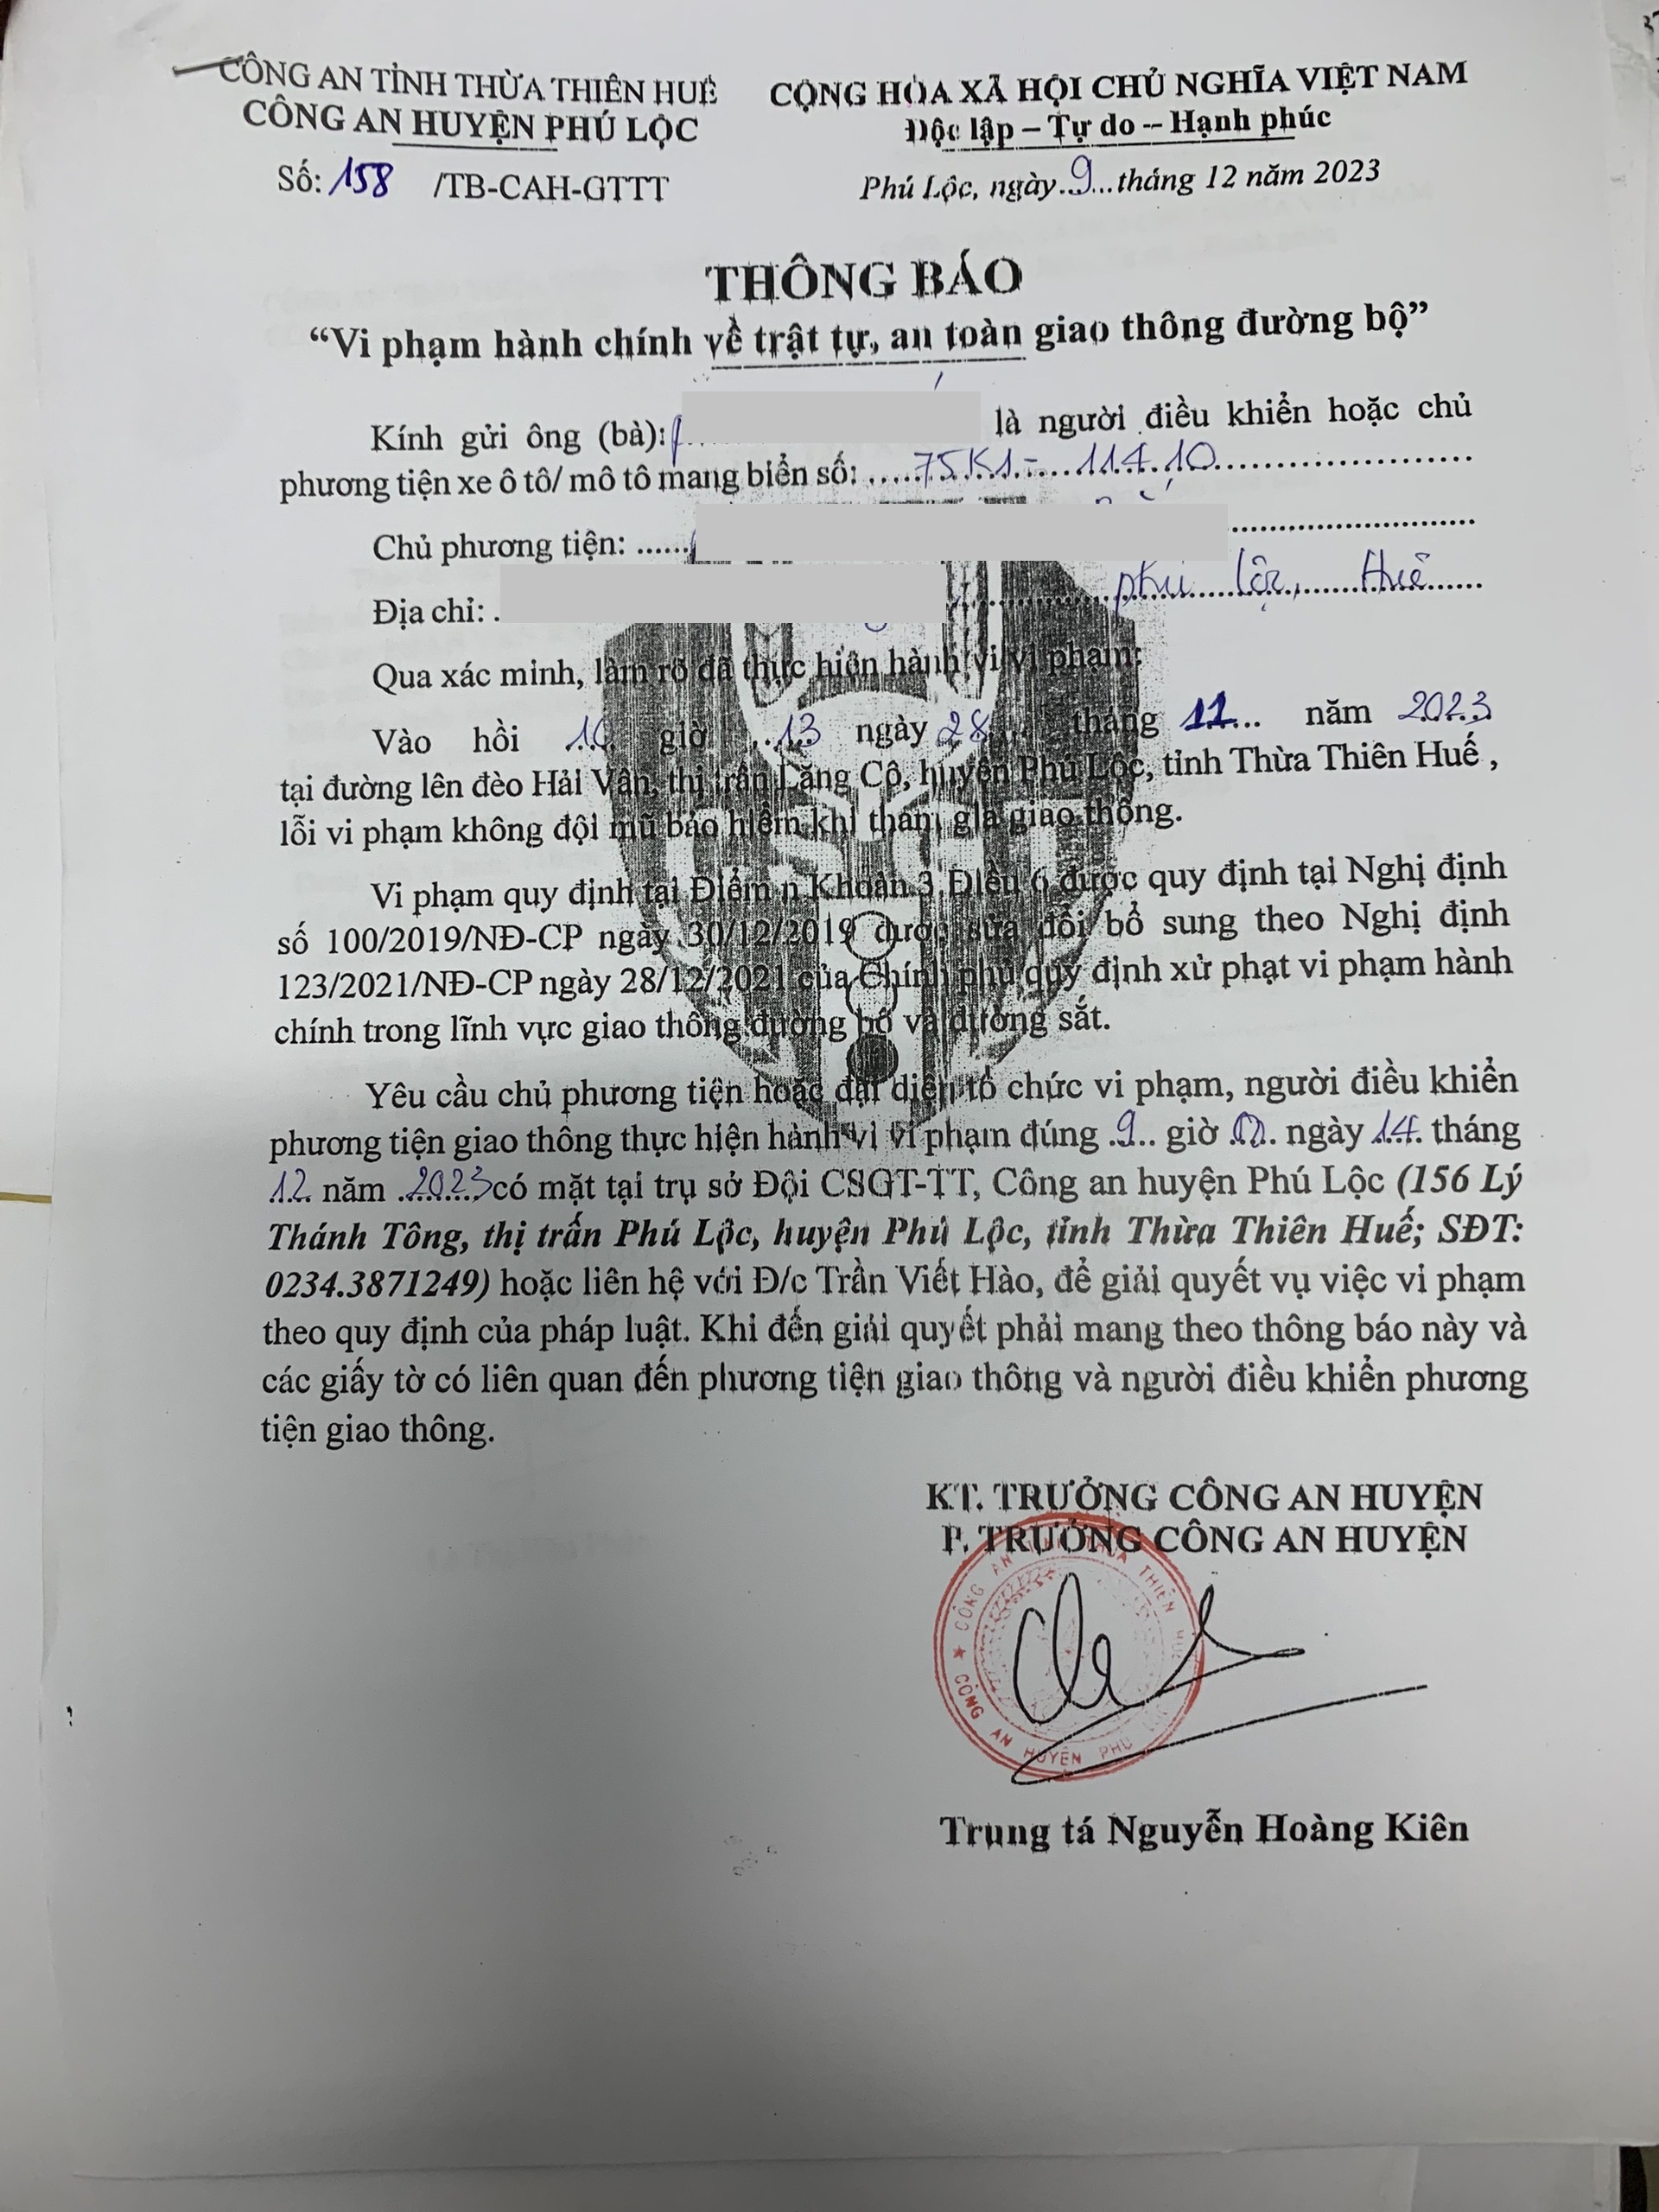 CÔNG AN TỈNH THỪA THIÊN HUẾ
CÔNG AN HUYỆN PHÚ LỘC
Số: 158 /TB-CAH-GTTT
CỘNG HÒA XÃ HỘI CHỦ NGHĨA VIỆT NAM
Độc lập – Tự do – Hạnh phúc
Phú Lộc, ngày 9 tháng 12 năm 2023
THÔNG BÁO
“Vi phạm hành chính về trật tự, an toàn giao thông đường bộ”
Kính gửi ông (bà): là người điều khiển hoặc chủ
phương tiện xe ô tô/ mô tô mang biển số: 75K1- 114.10
Chủ phương tiện:
Địa chỉ: Phú Lộc, Huế
Qua xác minh, làm rõ đã thực hiện hành vi vi phạm:
Vào hồi giờ 13 ngày 28 tháng 11 năm 2023
tại đường lên đèo Hải Vân, thị trấn Lăng Cô, huyện Phú Lộc, tỉnh Thừa Thiên Huế ,
lỗi vi phạm không đội mũ bảo hiểm khi tham gia giao thông.
Vi phạm quy định tại Điểm n Khoản 3 Điều 6 được quy định tại Nghị định
số 100/2019/NĐ-CP ngày 30/12/2019 được sửa đổi bổ sung theo Nghị định
123/2021/NĐ-CP ngày 28/12/2021 của Chính phủ quy định xử phạt vi phạm hành
chính trong lĩnh vực giao thông đường bộ và đường sắt.
Yêu cầu chủ phương tiện hoặc đại diện tổ chức vi phạm, người điều khiển
phương tiện giao thông thực hiện hành vi vi phạm đúng 9 giờ 00 ngày 14 tháng
12 năm 2023 có mặt tại trụ sở Đội CSGT-TT, Công an huyện Phú Lộc (156 Lý
Thánh Tông, thị trấn Phú Lộc, huyện Phú Lộc, tỉnh Thừa Thiên Huế; SĐT:
0234.3871249) hoặc liên hệ với Đ/c Trần Viết Hào, để giải quyết vụ việc vi phạm
theo quy định của pháp luật. Khi đến giải quyết phải mang theo thông báo này và
các giấy tờ có liên quan đến phương tiện giao thông và người điều khiển phương
tiện giao thông.
KT. TRƯỞNG CÔNG AN HUYỆN
P. TRƯỞNG CÔNG AN HUYỆN
CÔNG AN TỈNH THỪA THIÊN HUẾ
CÔNG AN HUYỆN PHÚ LỘC
Trung tá Nguyễn Hoàng Kiên